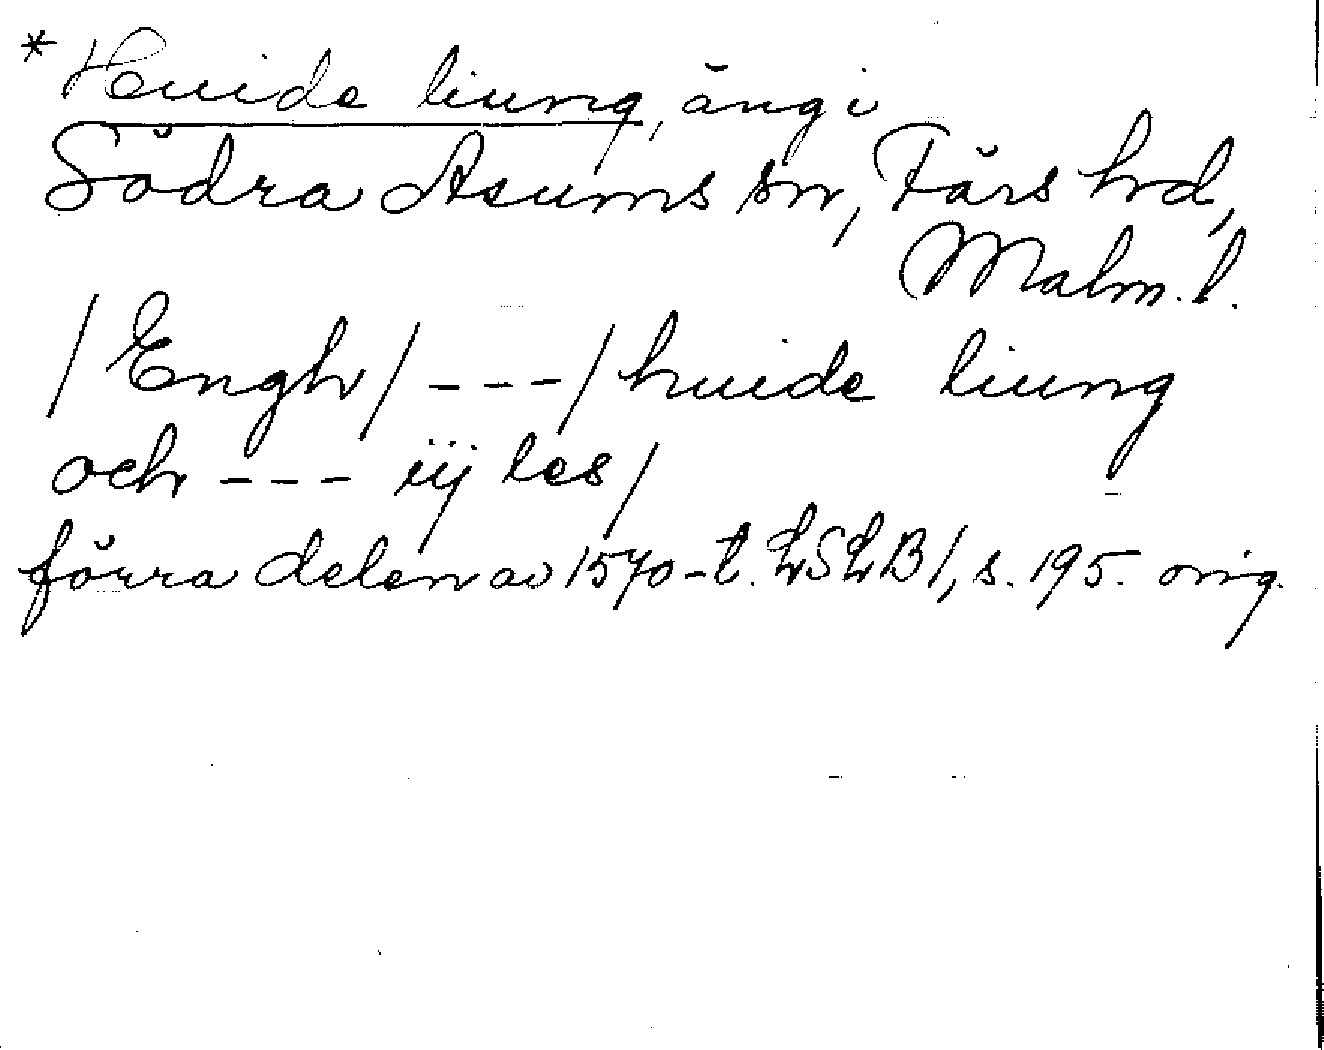 * Huide liung, äng i
Södra Åsums sn, Färs hd,
Malm. l.
/ Engh / --- / huide liung
och --- iij les /
förra delen av 1570-t. LSLB 1, s. 195. orig.